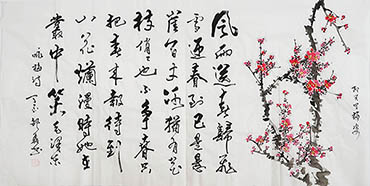 風雨送春歸飛
雪迎春到已是懸
崖百丈冰猶有花
枝俏俏也不爭春只
把春來報待到
山花爛漫時她在
叢中笑毛澤東
咏梅詩